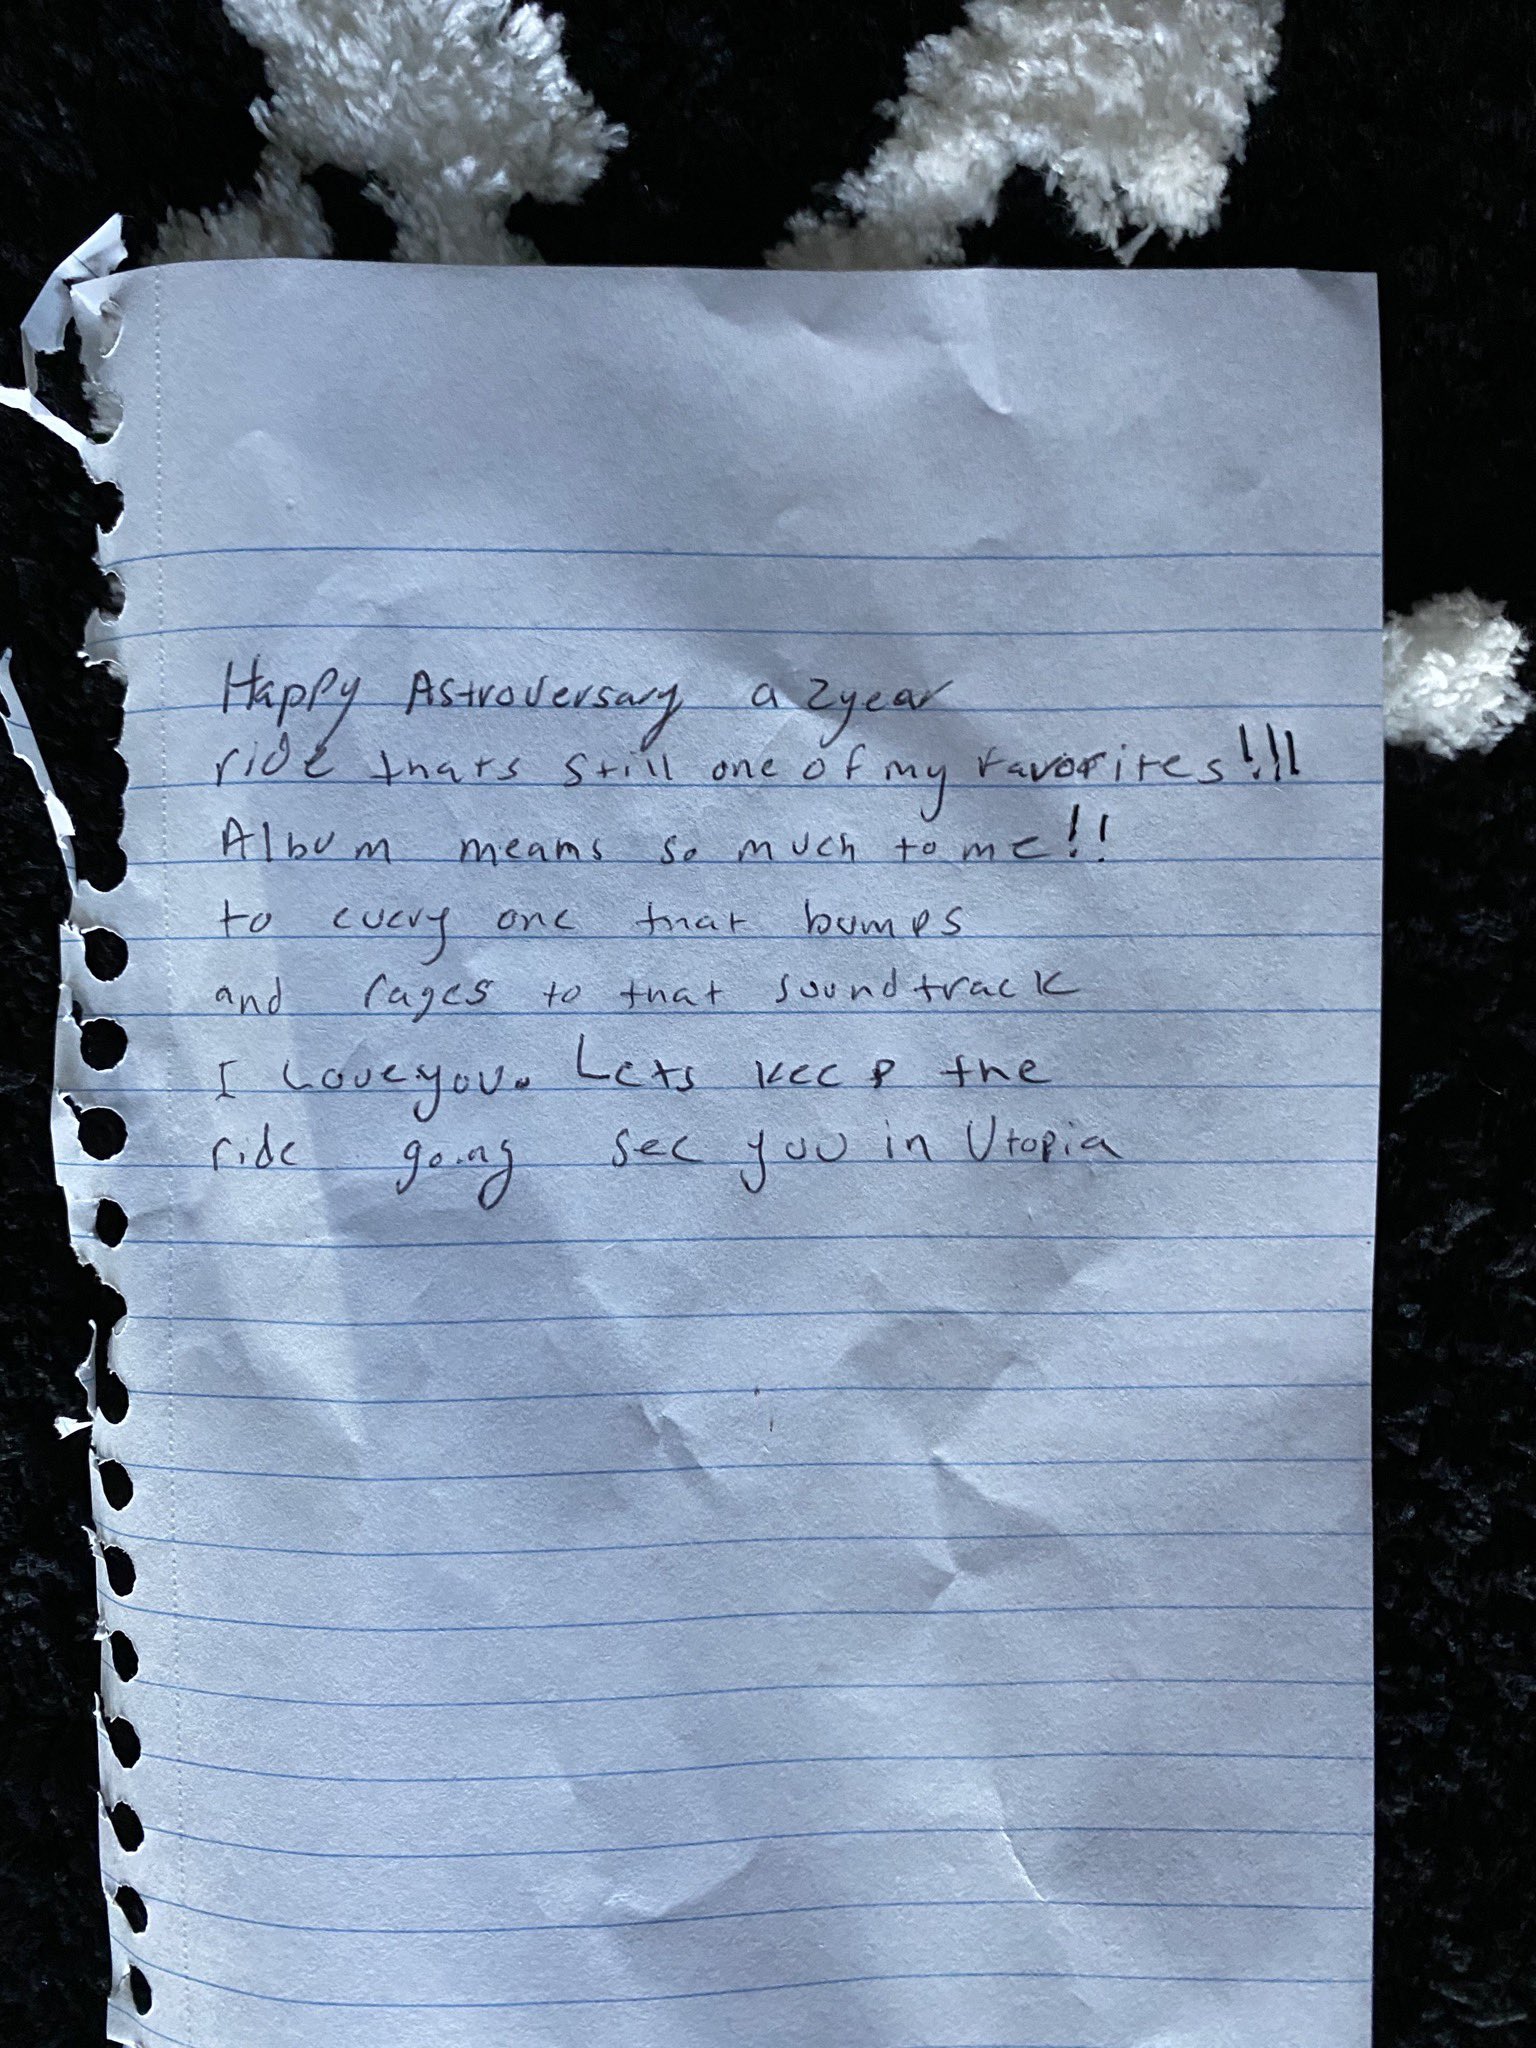 Happy Astroversary a 2year
ride thats still one of my favorites!!!
Album means so much to me!!
to every one that bumps
and rages to that soundtrack
I Love you. Lets keep the
ride going see you in Utopia